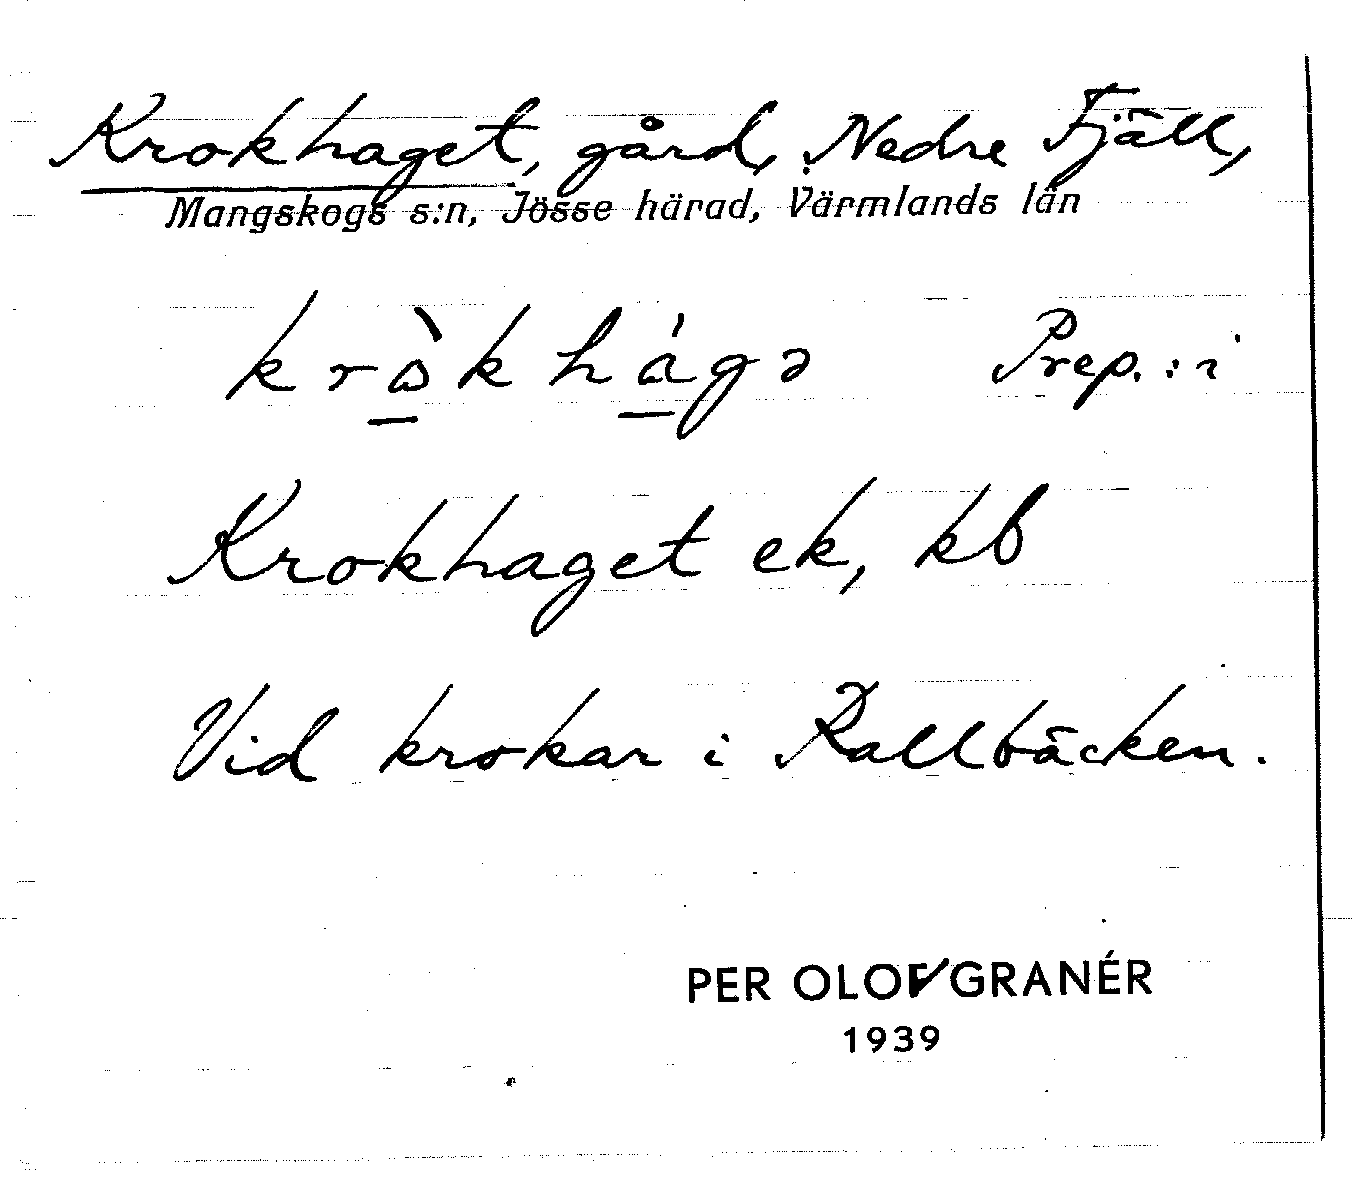 Krokhaget, gård, Nedre Fjäll,
Mangskogs s:n, Jösse härad, Värmlands län
kròkhágə Prep.: i
Krokhaget ek, kb
Vid krokar i Rallbäcken.
PER OLOV GRANÉR
1939